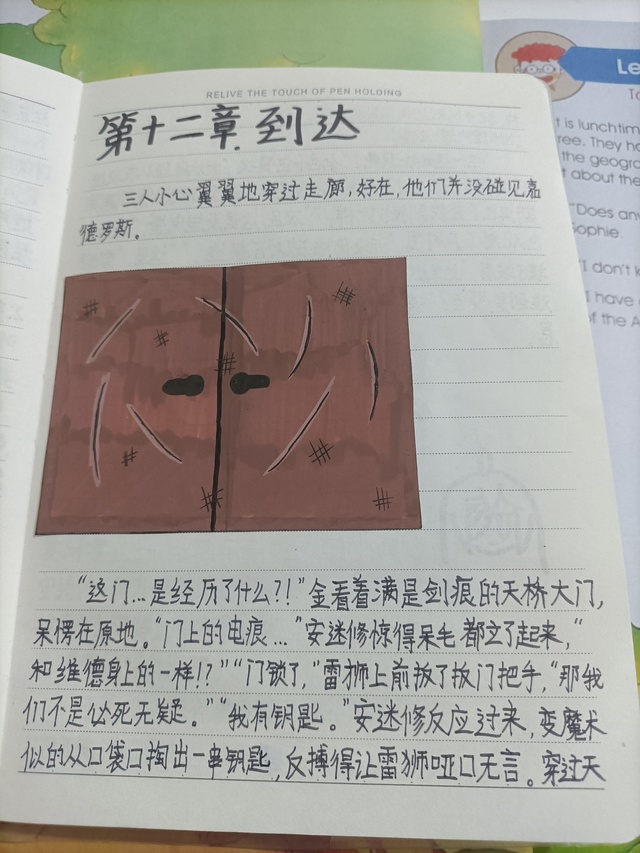 RELIVE THE TOUCH OF PEN HOLDING
第十二章.到达
三人小心翼翼地穿过走廊,好在,他们并没碰见嘉
德罗斯。
“这门...是经历了什么?!”金看着满是剑痕的天桥大门,
呆愣在原地。“门上的电痕...”安迷修惊得呆毛都立了起来,“
和维德身上的一样!?”“门锁了,”雷狮上前扳了扳门把手,“那我
们不是必死无疑。”“我有钥匙。”安迷修反应过来,变魔术
似的从口袋口掏出一串钥匙,反搏得让雷狮哑口无言。穿过天
Le
t is lunchtim
ree. They ha
the geogra
t about the
"Does an
Sophie.
"I don't k
I have
of the A